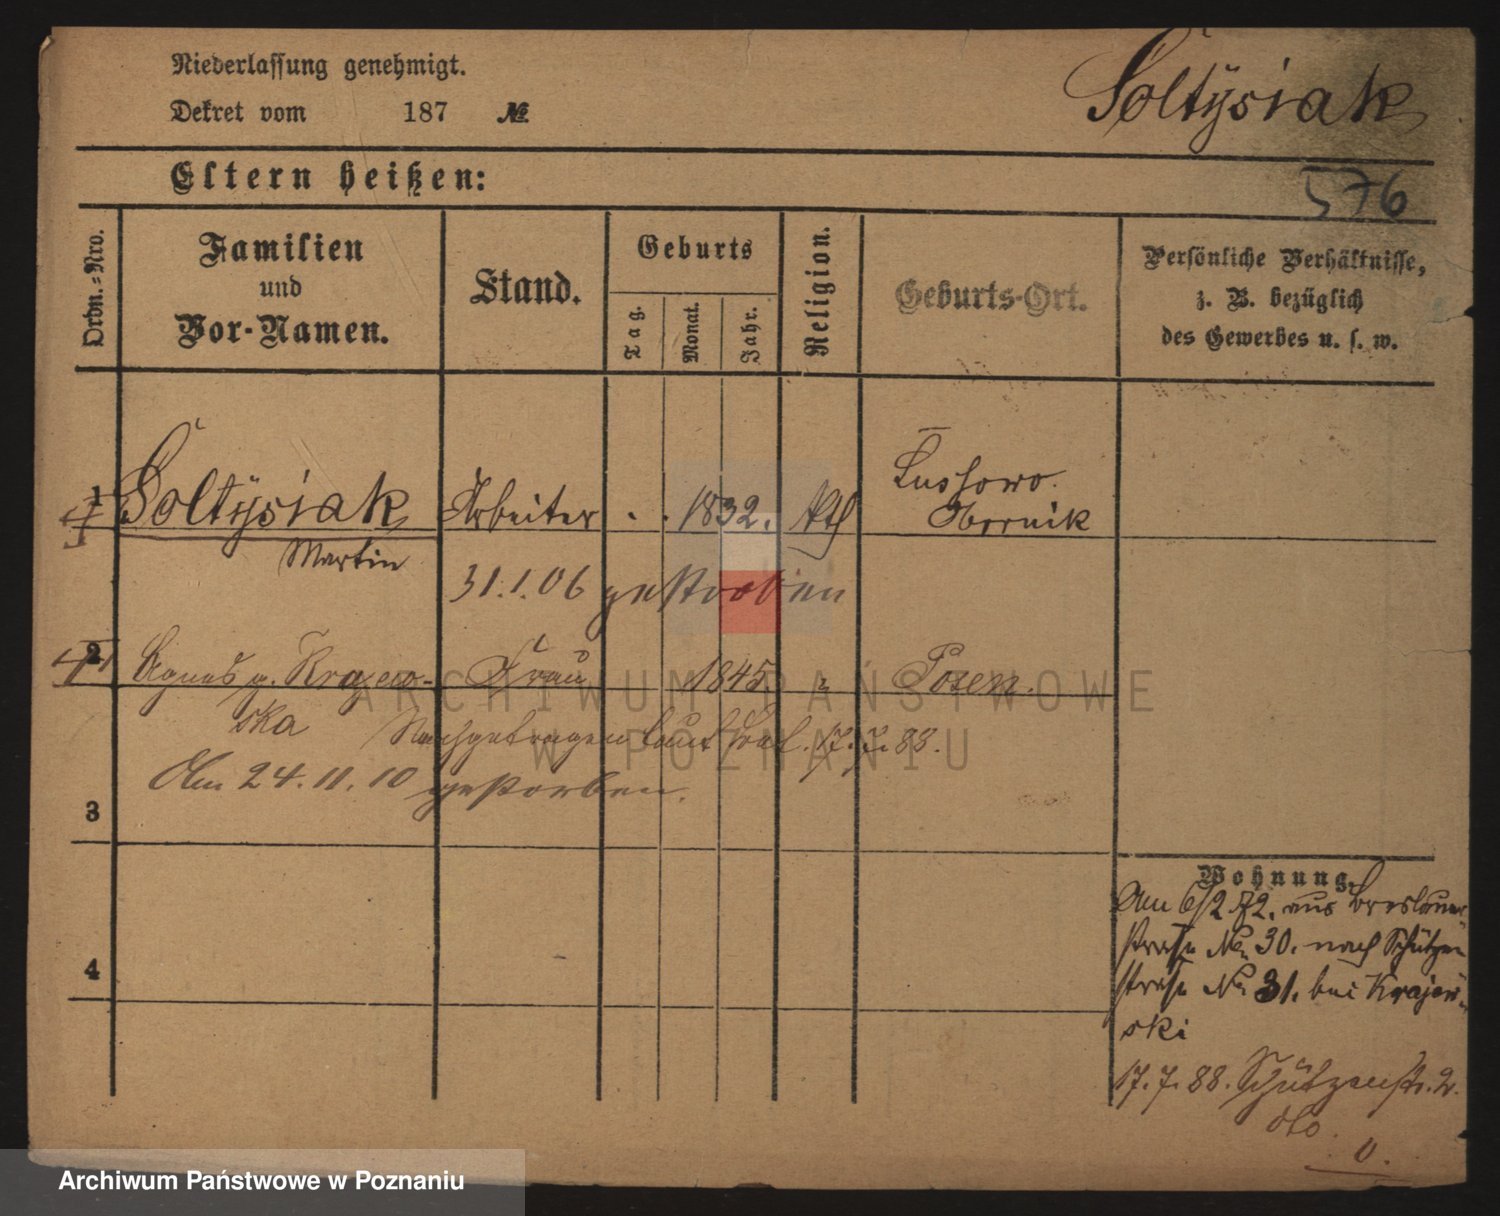 Niederlassung genehmigt.
Dekret vom 187 №
Soltysiak
Eltern heißen:
576
Ordn.-Nro.
Familien
und
Vor-Namen.
Stand.
Geburts
Tag.
Monat.
Jahr.
Religion.
Geburts-Ort.
Persönliche Verhältnisse,
z. B. bezüglich
des Gewerbes u. s. w.
1 Soltysiak Arbeiter . . 1832. kth
Obornik
Martin
31.1.06 gestorben
2 Agnes g. Krajew- Frau 1845 " Posen.
ska
Nachgetragen laut 17.7.88.
Am 24.11.10 gestorben.
3
4
Wohnung.
Am 6/2 72. aus Breslauer
straße No 30. nach Schützen
straße No 31. bei Krajew
ski
17.7.88. Schützenstr. 2.
dto.
0.
ARCHIWUM PAŃSTWOWE
W POZNANIU
Archiwum Państwowe w Poznaniu